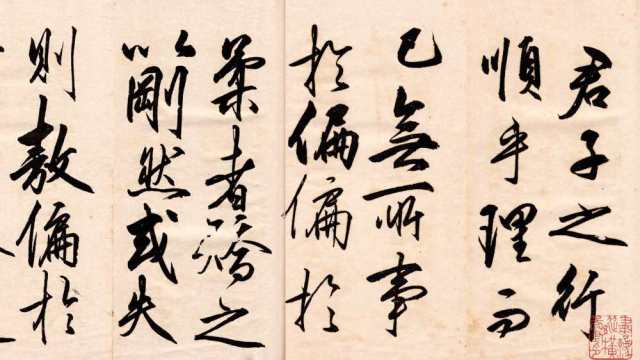 君子之行
順乎理而
已無所事
於偏偏於
柔者矯之
以剛然或失
則敖偏於